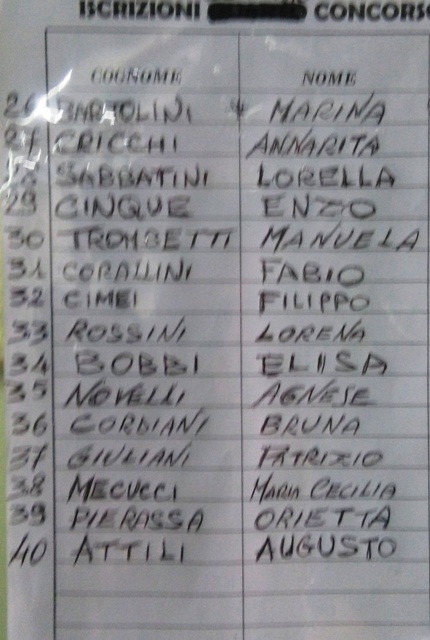 ISCRIZIONI CONCORSO
COGNOME NOME
26 BARTOLINI MARINA
27 CRICCHI ANNARITA
28 SABBATINI LORELLA
29 CINQUE ENZO
30 TROMBETTI MANUELA
31 CORALLINI FABIO
32 CIMEI FILIPPO
33 ROSSINI LORENA
34 BOBBI ELISA
35 NOVELLI AGNESE
36 CORDIANI BRUNA
37 GIULIANI PATRIZIO
38 MECUCCI MARIA CECILIA
39 PIERASSA ORIETTA
40 ATTILI AUGUSTO